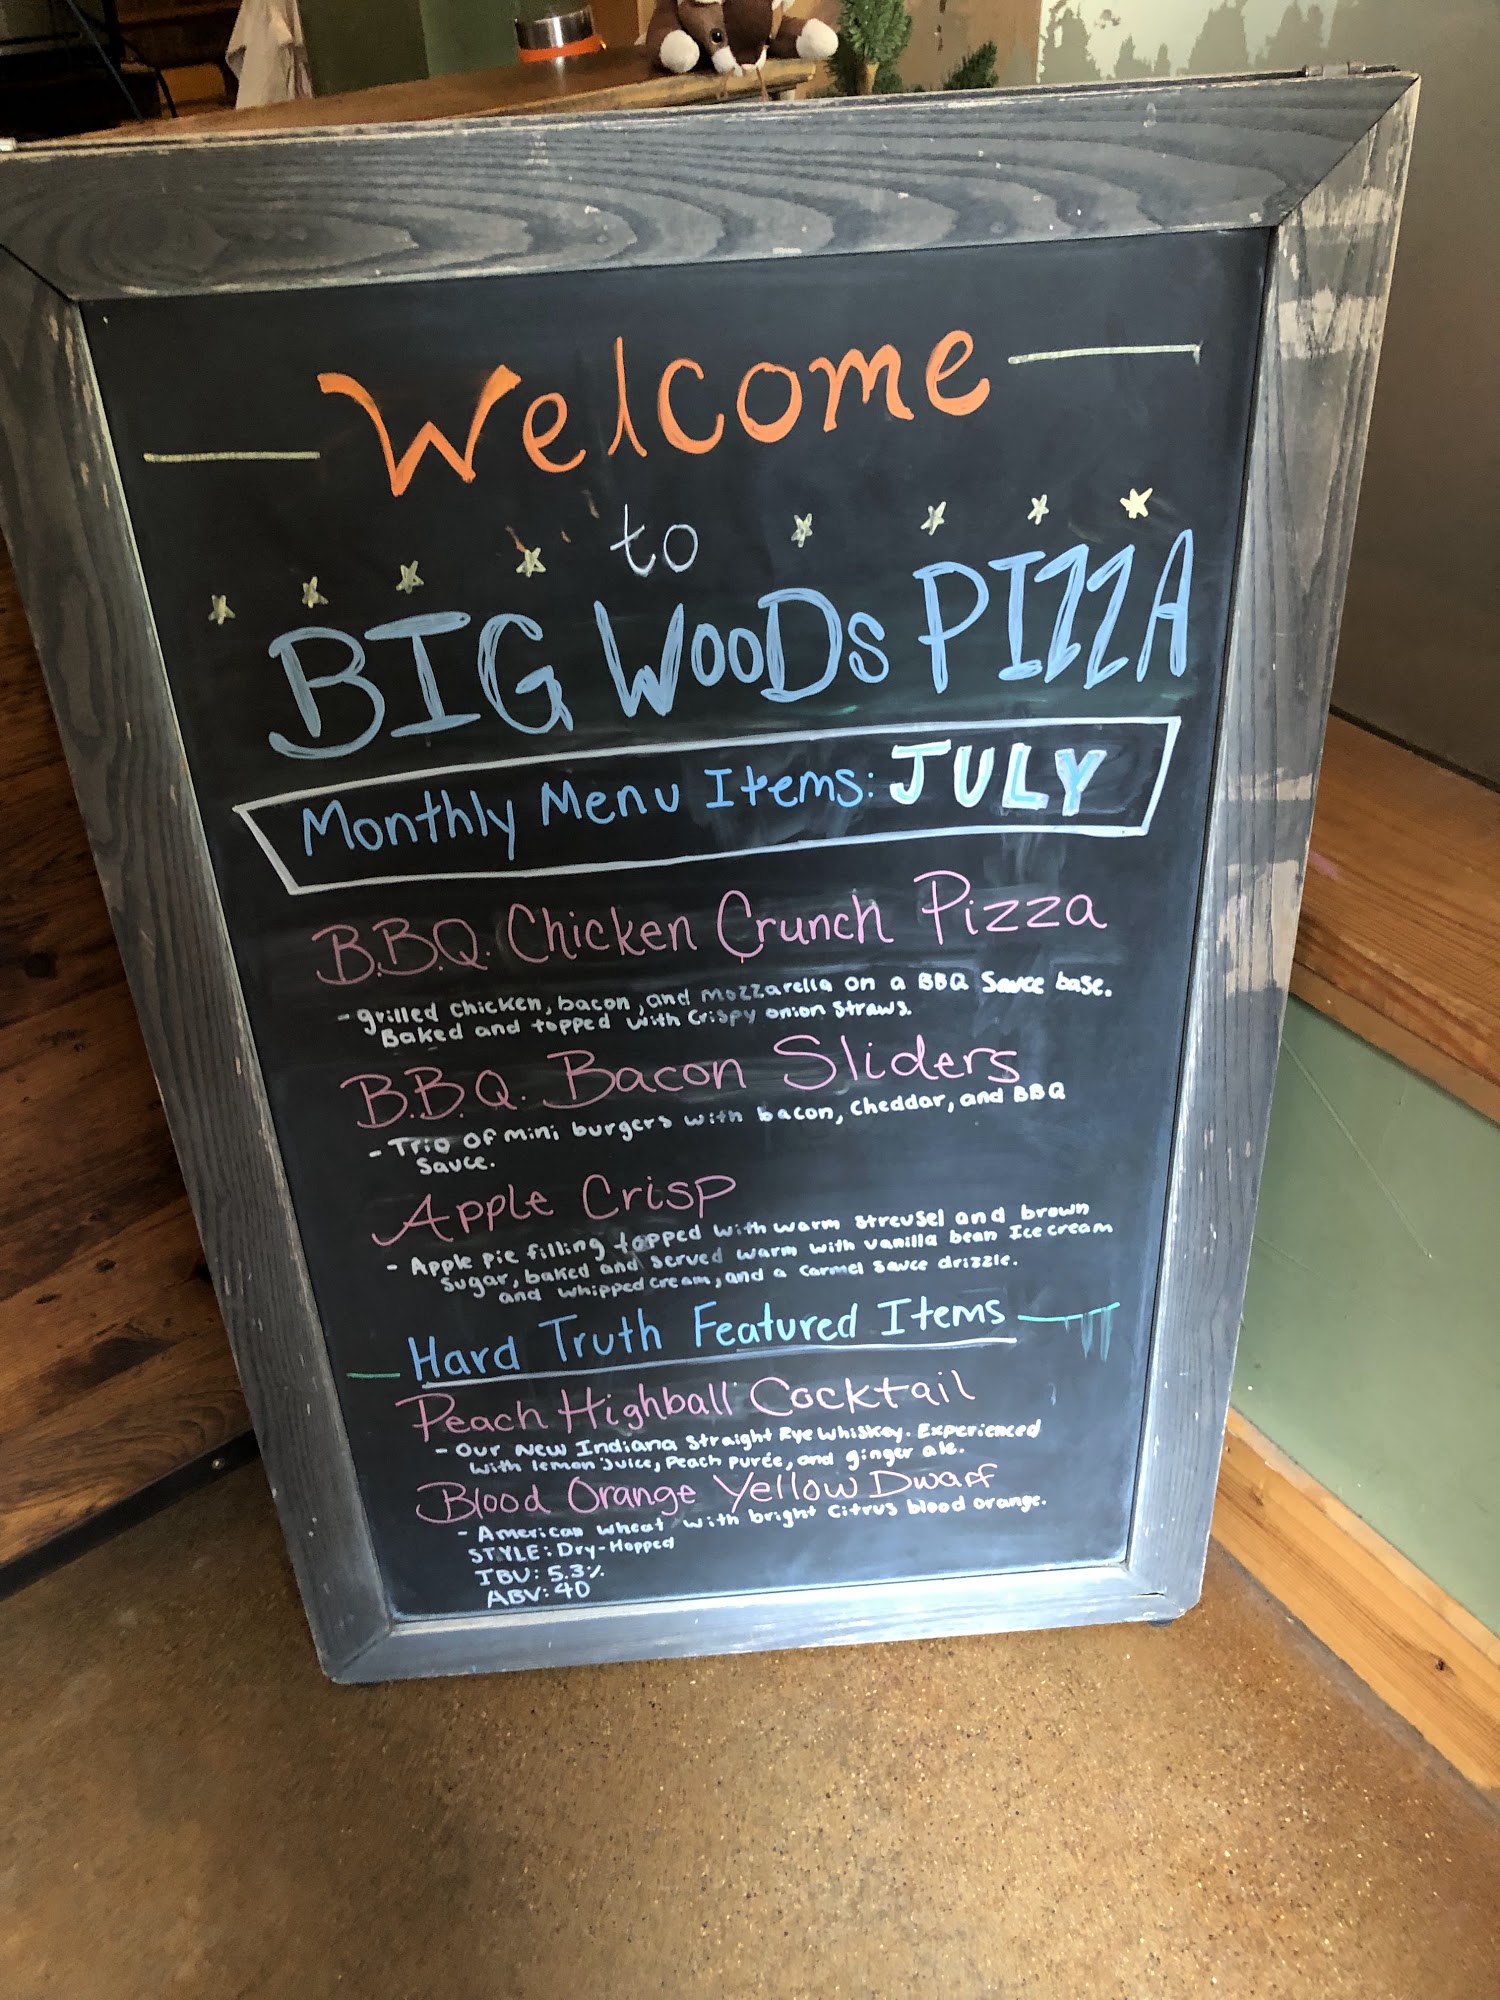 Welcome
to
BIG WOODS PIZZA
Monthly Menu Items: JULY
B.B.Q. Chicken Crunch Pizza
- grilled chicken, bacon, and mozzarella on a BBQ Sauce base.
Baked and topped with Crispy onion straws.
B.B.Q. Bacon Sliders
- Trio of mini burgers with bacon, cheddar, and BBQ
Sauce.
Apple Crisp
- Apple pie filling topped with warm streusel and brown
sugar, baked and served warm with vanilla bean Ice cream
and whipped cream, and a carmel sauce drizzle.
Hard Truth Featured Items
Peach Highball Cocktail
- Our New Indiana Straight Rye Whiskey. Experienced
with lemon juice, peach purée, and ginger ale.
Blood Orange Yellow Dwarf
- American wheat with bright citrus blood orange.
STYLE: Dry-Hopped
IBU: 5.3%
ABV: 40